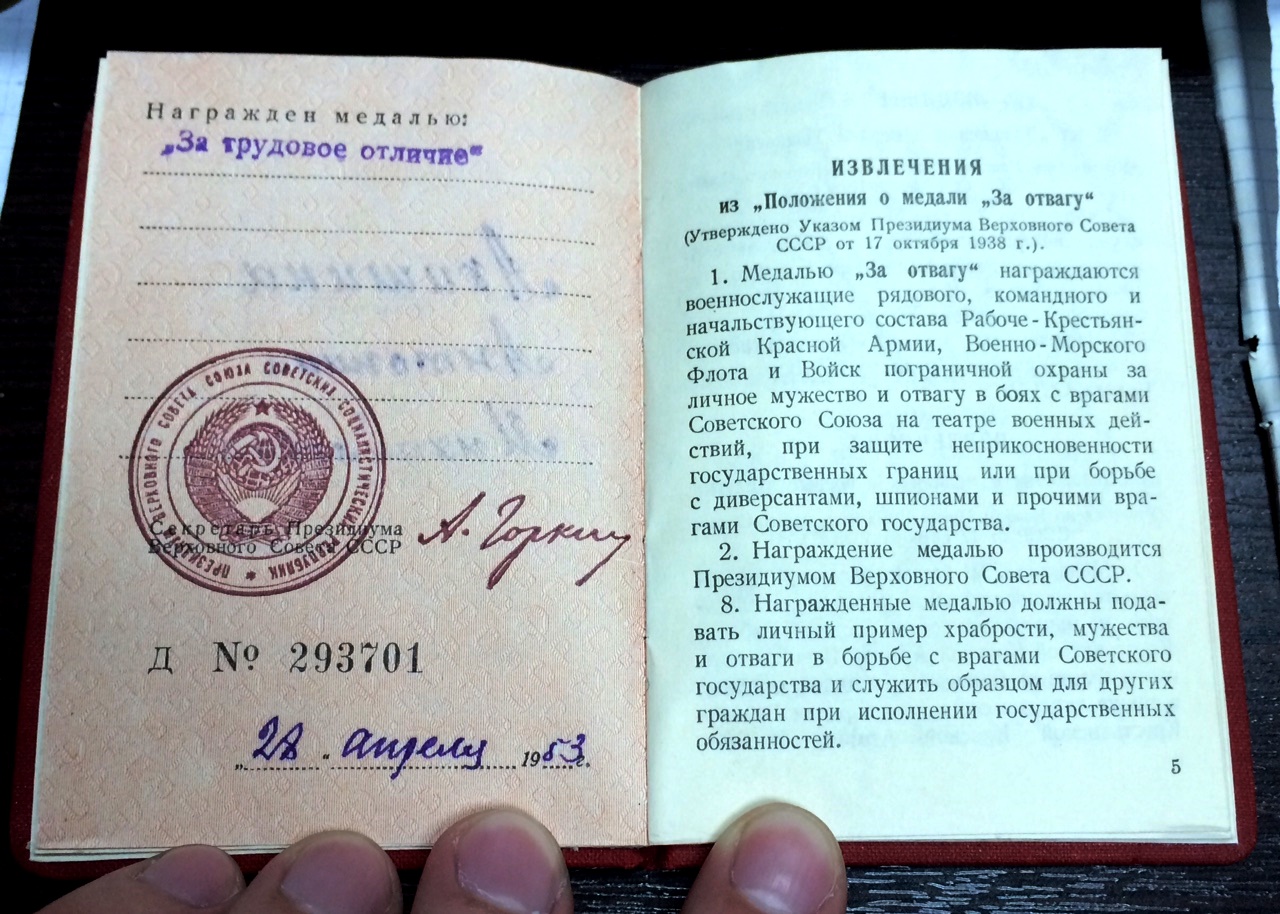 Награжден медалью:
„За трудовое отличие“
ПРЕЗИДИУМ ВЕРХОВНОГО СОВЕТА СОЮЗА СОВЕТСКИХ СОЦИАЛИСТИЧЕСКИХ РЕСПУБЛИК
Секретарь Президиума
Верховного Совета СССР
А. Горкин
Д № 293701
„28“ апреля 1953 г.
ИЗВЛЕЧЕНИЯ
из „Положения о медали „За отвагу“
(Утверждено Указом Президиума Верховного Совета
СССР от 17 октября 1938 г.).
1. Медалью „За отвагу“ награждаются
военнослужащие рядового, командного и
начальствующего состава Рабоче-Крестьян-
ской Красной Армии, Военно-Морского
Флота и Войск пограничной охраны за
личное мужество и отвагу в боях с врагами
Советского Союза на театре военных дей-
ствий, при защите неприкосновенности
государственных границ или при борьбе
с диверсантами, шпионами и прочими вра-
гами Советского государства.
2. Награждение медалью производится
Президиумом Верховного Совета СССР.
8. Награжденные медалью должны пода-
вать личный пример храбрости, мужества
и отваги в борьбе с врагами Советского
государства и служить образцом для других
граждан при исполнении государственных
обязанностей.
5